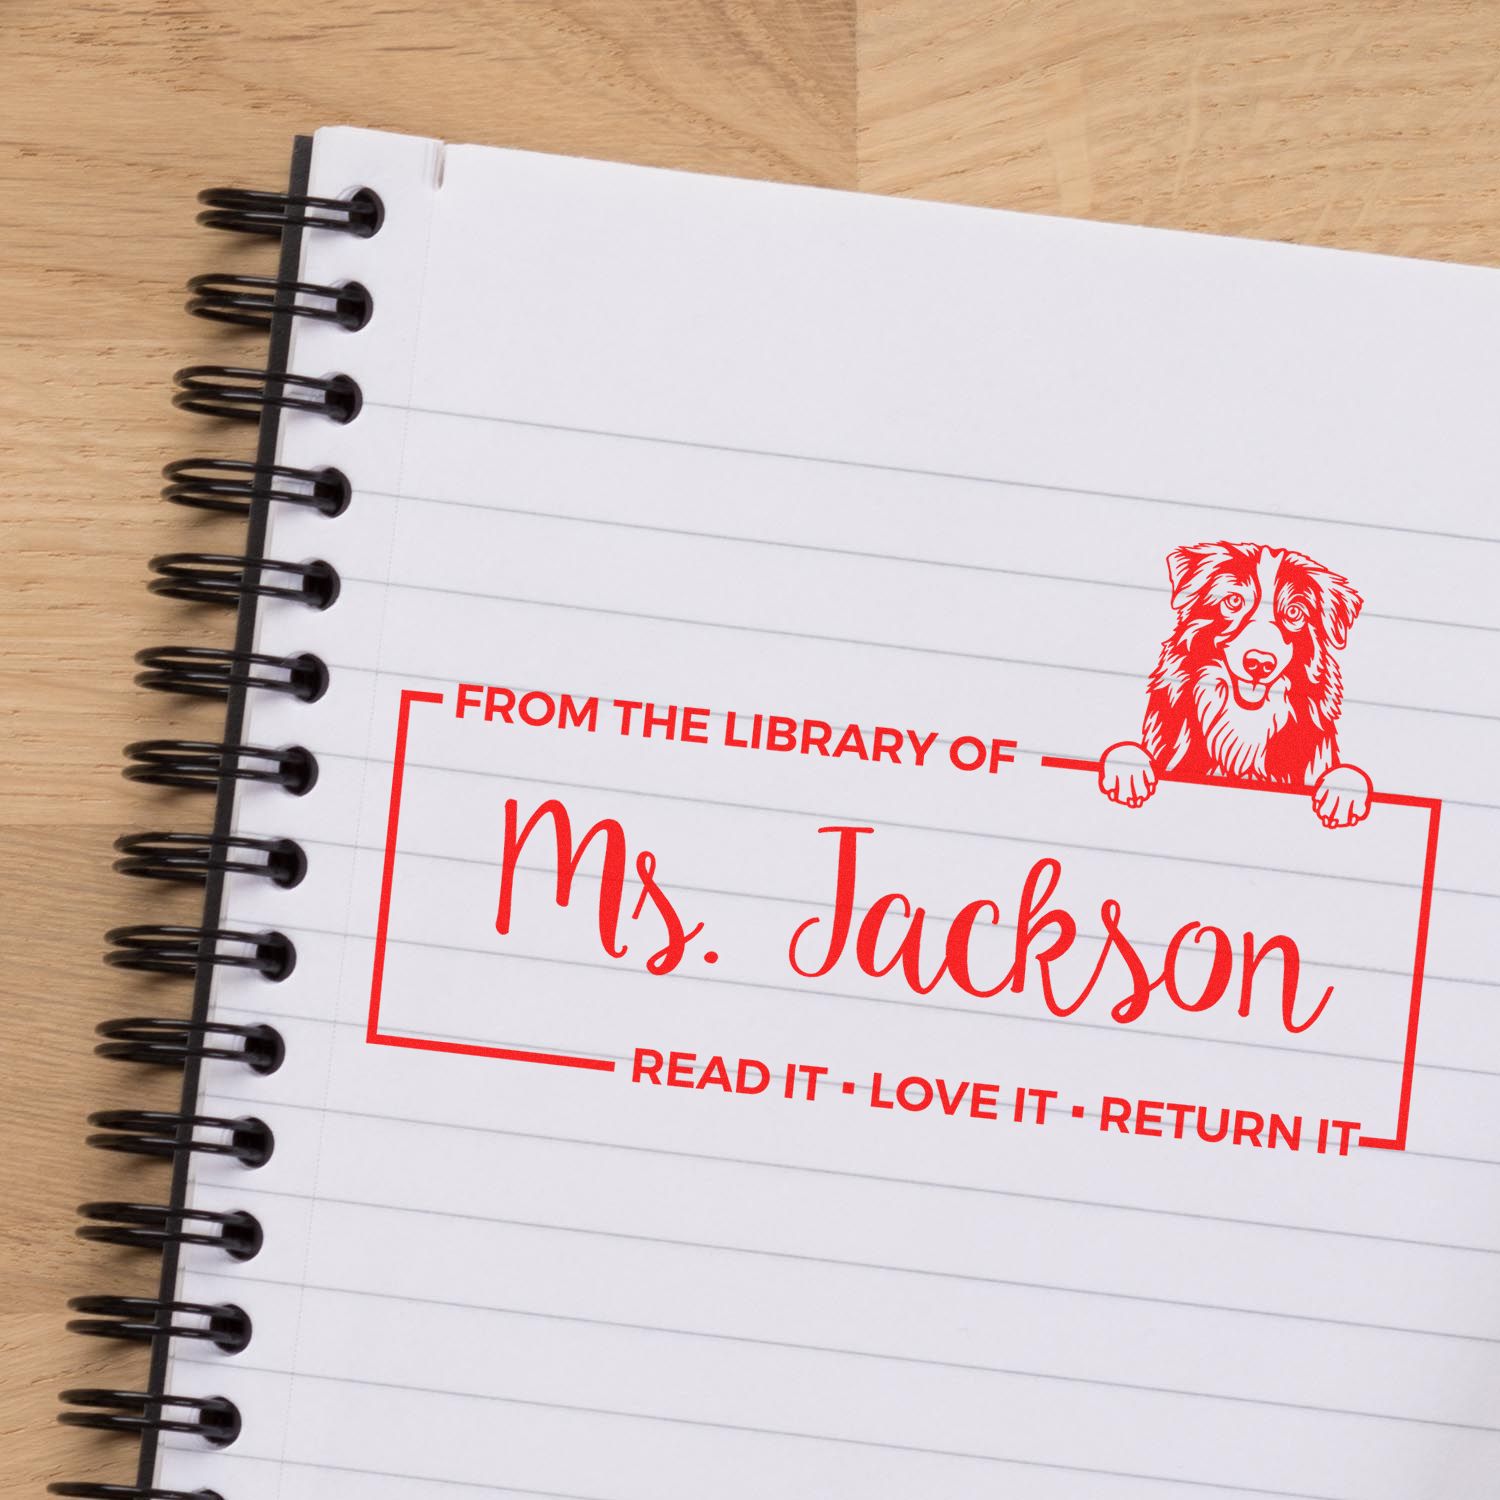 FROM THE LIBRARY OF
Ms. Jackson
READ IT ▪ LOVE IT ▪ RETURN IT